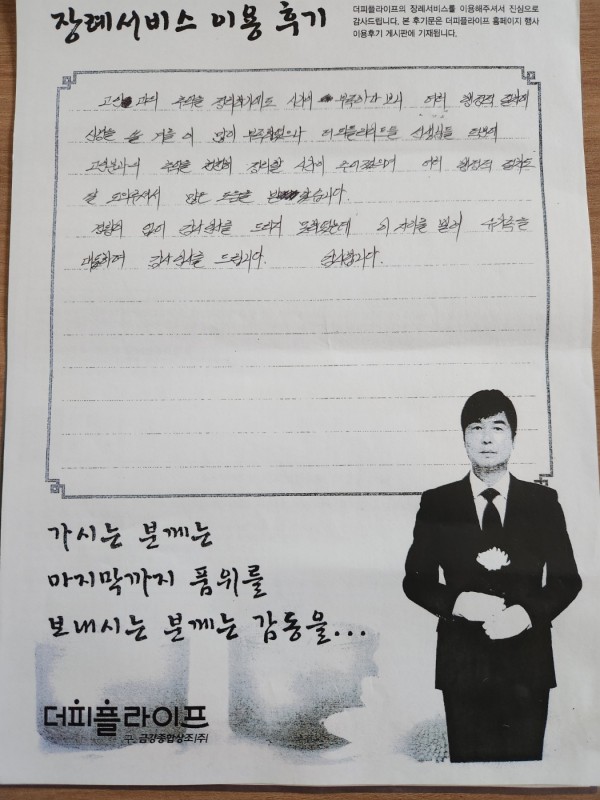 장례서비스 이용 후기
더피플라이프의 장례서비스를 이용해주셔서 진심으로
감사드립니다. 본 후기문은 더피플라이프 홈페이지 행사
이용후기 게시판에 기재됩니다.
추억을 정리하기에도 시간이 부족하다 보니 여러 행정적 절차에
신경을 쓸 겨를이 많이 부족했으나 더피플라이프 선생님들 덕분에
고인분과의 추억을 천천히 정리할 시간이 주어졌으며 여러 행정적 절차도
잘 도와주셔서 많은 도움을 받았습니다.
경황이 없어 감사인사를 드리지 못하였는데 이 자리를 빌려 유가족을
대표하여 감사인사를 드립니다. 감사합니다.
가시는 분께는
마지막까지 품위를
보내시는 분께는 감동을...
더피플라이프
구. 금강종합상조(주)